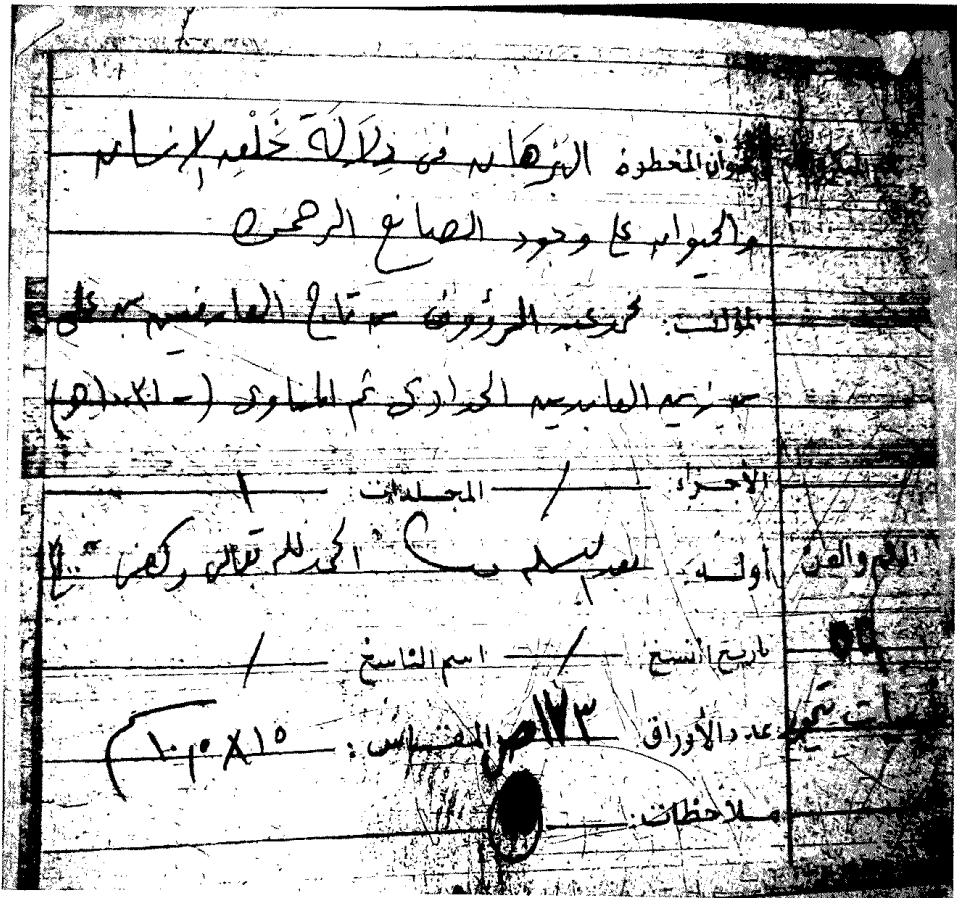 عنوان المخطوط البرهان في دِلَالَة خَلْق الإنسان
والحيوان على وجود الصانع الرحمن
المؤلف: محمد عبد الرؤوف بن تاج العارفين بن علي
بن زين العابدين الحدادي ثم المناوي (- ١٠٣١ هـ)
الأجزاء / المجلدات ١
الرقم والفن أوله: بعد الحمد لله تعالى وكفى
تاريخ النسخ / اسم الناسخ /
عدد الأوراق ١٧٣ ص المقياس: ١٥ X ١٠,٥
ملاحظات: